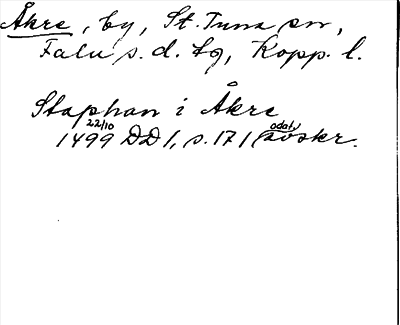 Åkre, by, St. Tuna sn,
Falu s. d. tg, Kopp. l.
Staphan i Åkre
22/10
1499 DD 1, s. 171 (odat.
avskr.